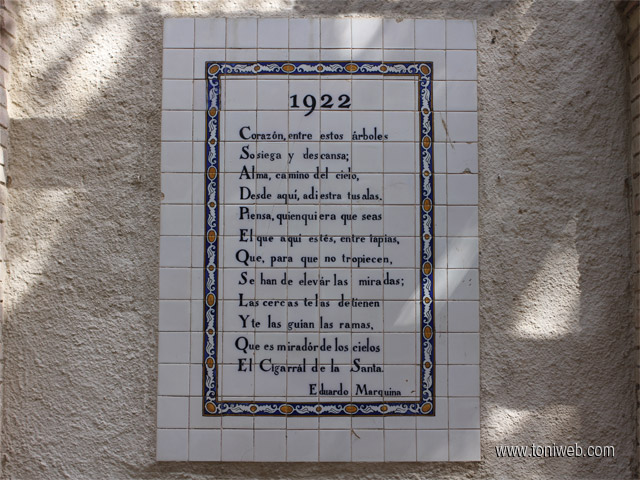 1922
Corazón, entre estos árboles
Sosiega y descansa;
Alma, camino del cielo,
Desde aquí, adiestra tus alas.
Piensa, quienquiera que seas
El que aquí estés, entre tapias,
Que, para que no tropiecen,
Se han de elevár las miradas;
Las cercas te las detienen
Y te las guian las ramas,
Que es miradór de los cielos
El Cigarrál de la Santa.
Eduardo Marquina
www.toniweb.com